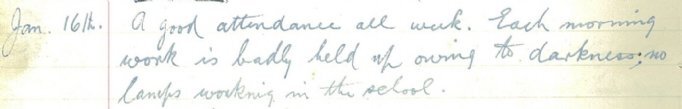 Jan. 16th. A good attendance all week. Each morning
work is badly held up owing to darkness; no
lamps working in the school.